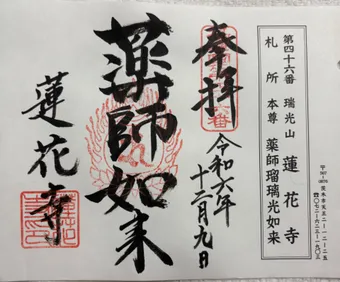 第四十六番 瑞光山 蓮花寺
札所本尊 薬師瑠璃光如来
奉拝
令和六年
十二月九日
薬師如来
蓮花寺